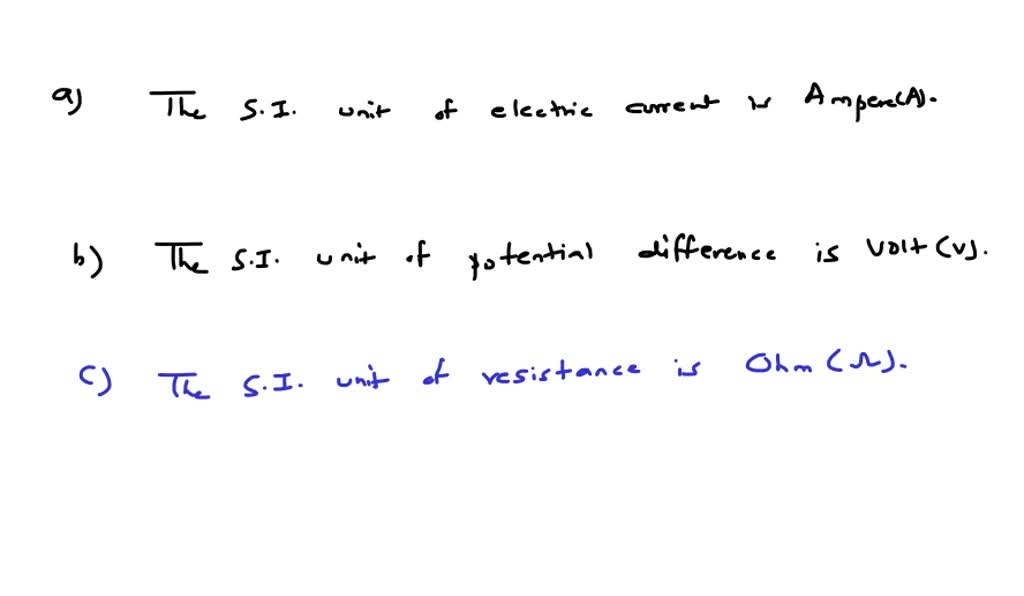 a) The S.I. unit of electric current is Ampere(A).
b) The S.I. unit of potential difference is Volt (V).
c) The S.I. unit of resistance is Ohm (Ω).